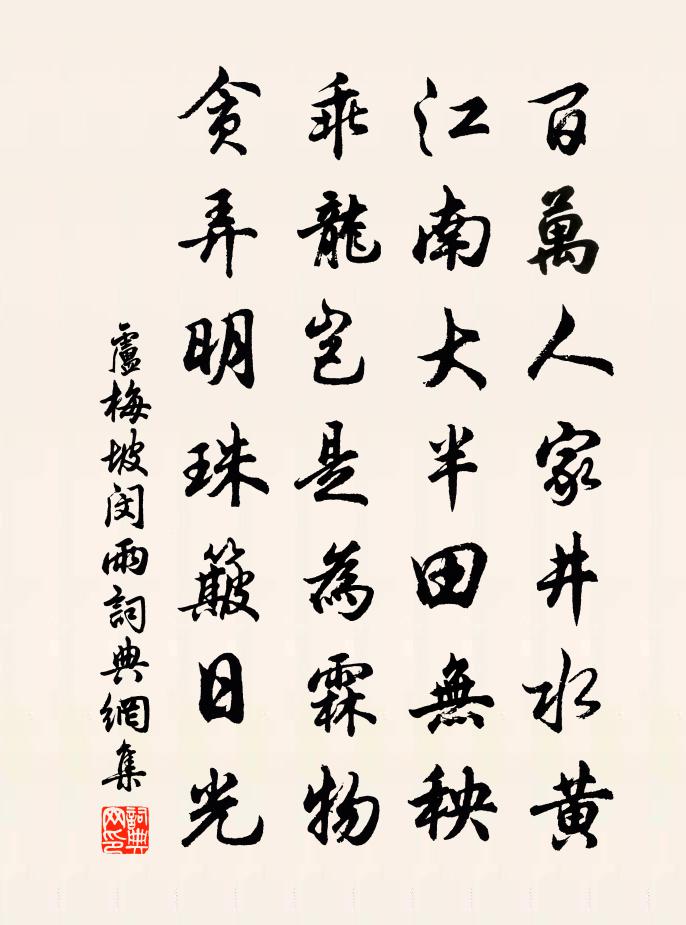 百萬人家井水黃
江南大半田無秧
乖龍豈是為霖物
貪弄明珠簸日光
盧梅坡閔雨詞典網集
詞典网印